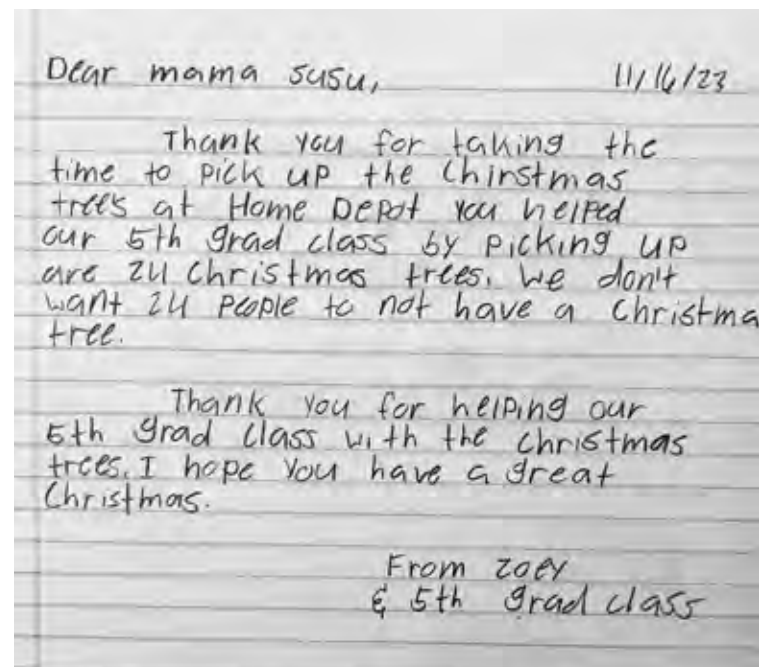 Dear mama susu, 11/16/23
Thank you for taking the
time to pick up the Chirstmas
trees at Home Depot you helped
our 5th grad class by picking up
are 24 Christmas trees. We don't
want 24 people to not have a Christma
tree.
Thank you for helping our
5th grad class with the christmas
trees. I hope you have a great
Christmas.
From Zoey
& 5th grad class